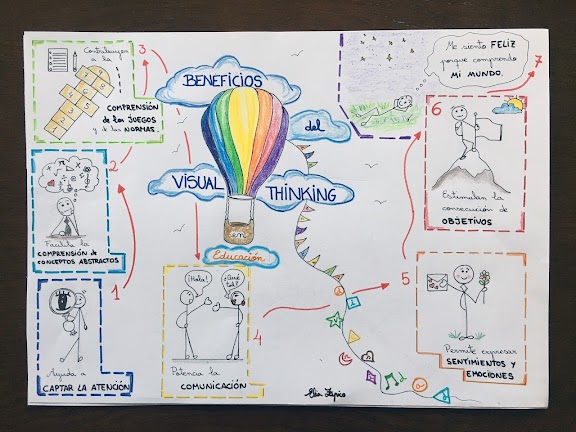 BENEFICIOS
del
VISUAL THINKING
en
Educación
1
Ayuda a
CAPTAR LA ATENCIÓN
2
Facilita la
COMPRENSIÓN de
CONCEPTOS ABSTRACTOS
3
Contribuyen
a la
COMPRENSIÓN
de los JUEGOS
y de las NORMAS.
4
¡Hola!
¿Qué
tal?
Potencia la
COMUNICACIÓN
5
Permite expresar
SENTIMIENTOS Y
EMOCIONES
6
Estimulan la
consecución de
OBJETIVOS
7
Me siento FELIZ
porque comprendo
MI MUNDO.